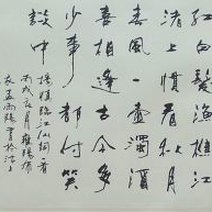 髮漁樵江
渚上慣看秋月
春風一壺濁酒
喜相逢古今多
少事都付笑
談中
楊慎臨江仙詞